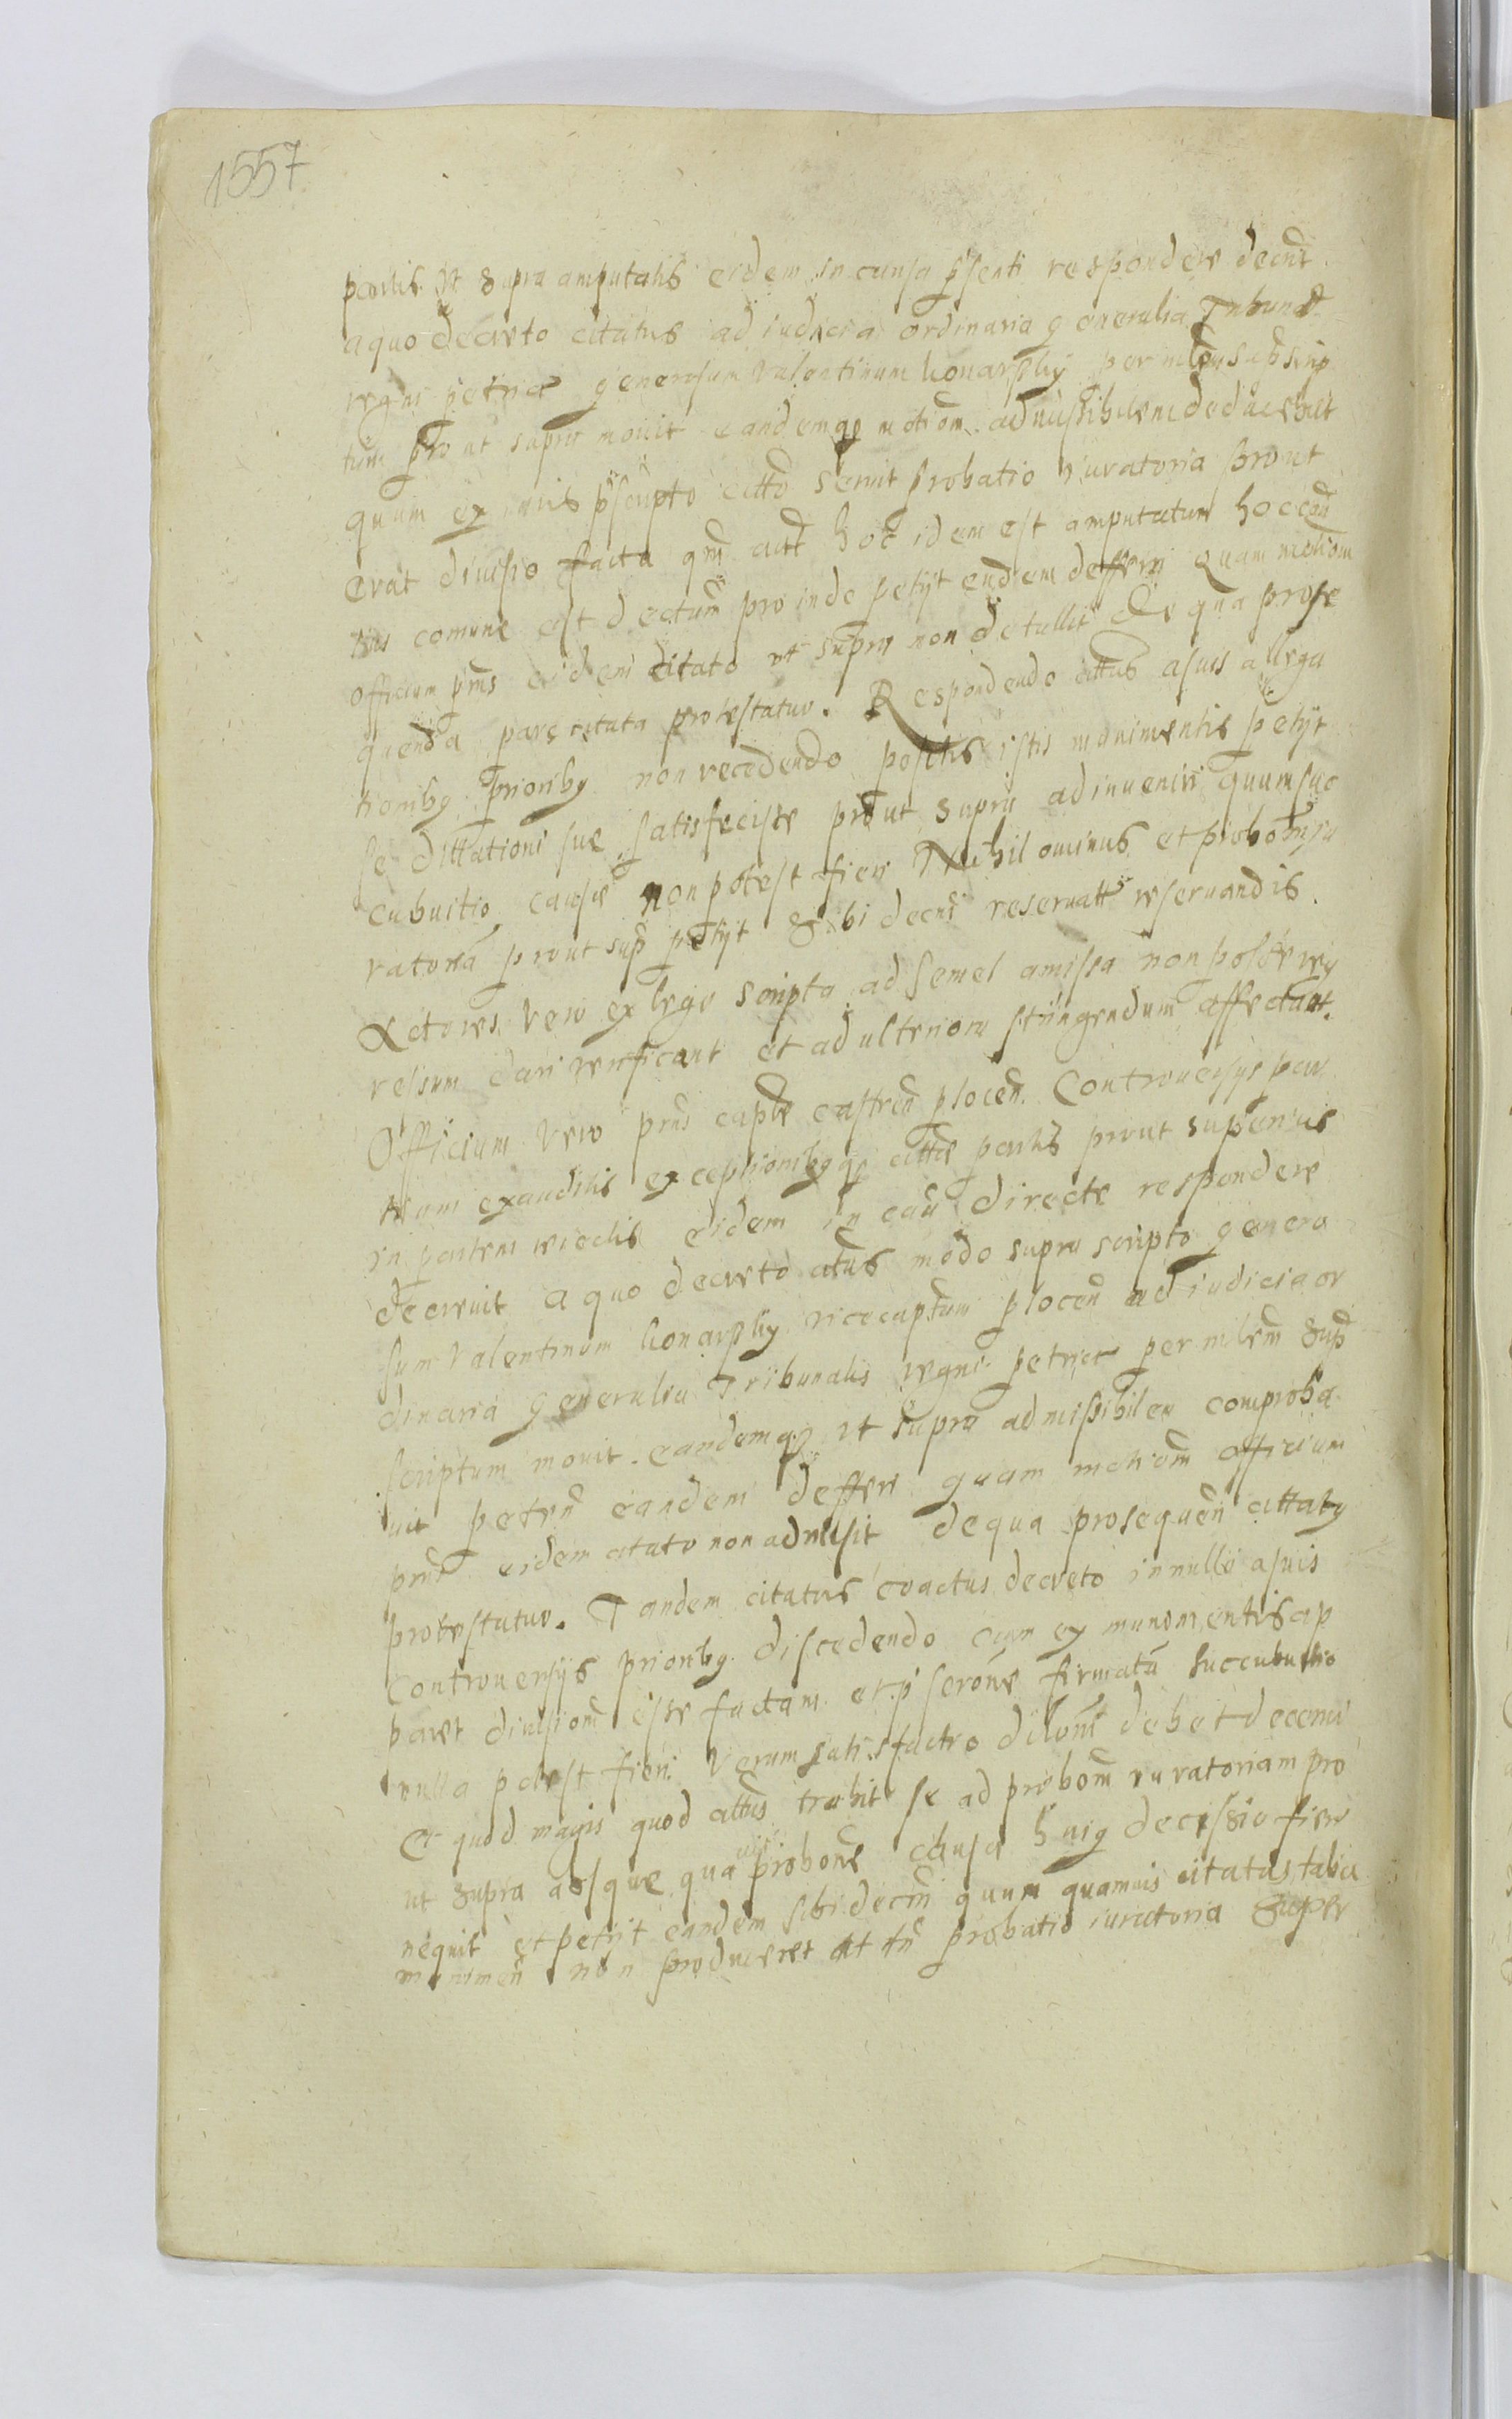 1557
partis ut supra amputatis eidem in causa psenti respondere decrit
a quo decreto citatus ad iudicia ordinaria generalia Tribunal
regni petric generosum Valentinum Konarsky per mlem supscrip
tum prout supra mouit eandemqe motiom admissibilem deducebat
quum ex iuris pscripto citto seruit probatio iuratoria prout
erat diuisio facta qm aut hoc idem est amputatum hoc
ius comune est dectum proinde petijt eadem defferri Quam motiom
officium pns eidem citato ut supra non detullit De qua prose
quenda pars citata protestatur. Respondendo cittus a suis allega
tionibq prioribq non recedendo positis istis munimentis petijt
se dillationi sue satisfecisse prout supra adinueniri quum suc
cubuitio causae non potest fieri Nihilominus et probom iu
ratoria prout sup petijt sibi decni reseruatt reseruandis.
Actores vero ex lege scripta ad semel amissa non posse reg
ressum dari verificant et ad ulteriora stringendum affectant.
Officium vero pns captle castren plocen. Controuersijs par
tium exauditis exceptionibqqe citte partis prout superius
in partem reiectis eidem in cau directe respondere
decreuit a quo decreto cittus modo supra scripto genero
sum Valentinum Konarsky vicecaptum plocen ad iudicia or
dinaria generalia Tribunalis regni petric per mlem sup
scriptum mouit. eandemqe ut supra admissibilem comproba
uit peten eandem deffere quam motiom officium
pns eidem citato non admisit de qua prosequen cittaty
protestatur. Tandem citatus coactus decreto in nullo a suis
Controuersijs prioribq discedendo cum ex munimentis ap
paret diuisiom esse factam et p serome firmatu succubuitio
nulla potest fieri Verum satisfactio dilonis debet decerni
Et quod magis quod cittus trahit se ad probom iuratoriam pro
ut supra absque qua probone causa huiq decissio fieri
nequit et petijt eandem sibi decni quum quamuis citatus talia
munimen non produceret at tn probatio iuratoria super